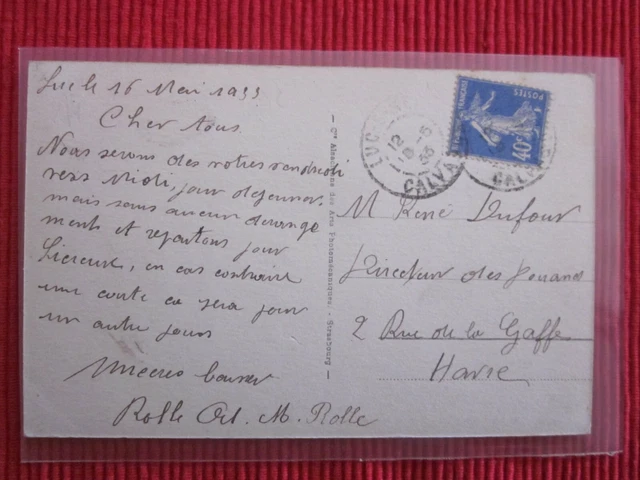 Luc le 16 Mai 1933
Cher tous
Nous serons des votres vendredi
vers Midi, pour dejeuner,
mais sans aucun derange
ments et repartons pour
en cas contraire
une carte ca sera pour
un autre jour
Rolle Oct. M. Rolle
Cie Alsacienne des Arts Photomécaniques - Strasbourg
LUC
CALVA
CALVA
POSTES
FRANÇAISE
40c
M René Dufour
Directeur des Douanes
2 Rue de la Gaffe
Havre